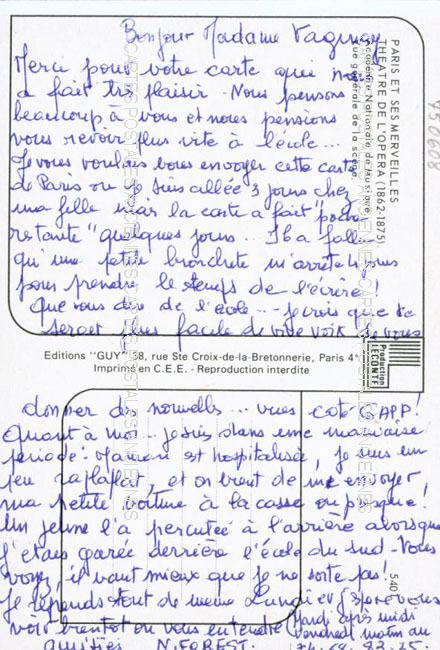 Bonjour Madame
Merci pour votre carte qui nous
a fait très plaisir. Nous pensons
beaucoup à vous et nous pensions
vous revoir plus vite à l'école...
Je vous voulais vous envoyer cette carte
de Paris où je suis allée 3 jours chez
ma fille mais la carte a fait "poche
restante" quelques jours... Il a fallu
qu'une petite bronchite m'arrête
pour prendre le temps de l'écrire!
Que vous dire de l'école... je crois que ce
serait plus facile de vive voix de vous
donner de nouvelles... vues coté GAPP!
Quant à moi... je suis dans une mauvaise
période: Maman est hospitalisée, je suis un
peu raplapla, et on vient de m'envoyer
ma petite voiture à la casse ou presque!
Un jeune l'a percutée à l'arrière alors que
j'étais garée derrière l'école du sud. Vous
voyez, il vaut mieux que je ne sorte pas!
Je reprends tout de même Lundi et j'espère vous
voir bientôt ou vous entendre Mardi après midi
Vendredi matin au
amitiés N. FOREST.
PARIS ET SES MERVEILLES
THEATRE DE L'OPERA (1862-1875)
Académie Nationale de Musique
Vue générale de la scène
750608
Editions "GUY" 38, rue Ste Croix-de-la-Bretonnerie, Paris 4e
Imprimé en C.E.E. - Reproduction interdite
Production
LECONTE
540